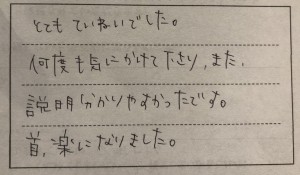 とてもていねいでした。
何度も気にかけて下さり、また、
説明分かりやすかったです。
首、楽になりました。